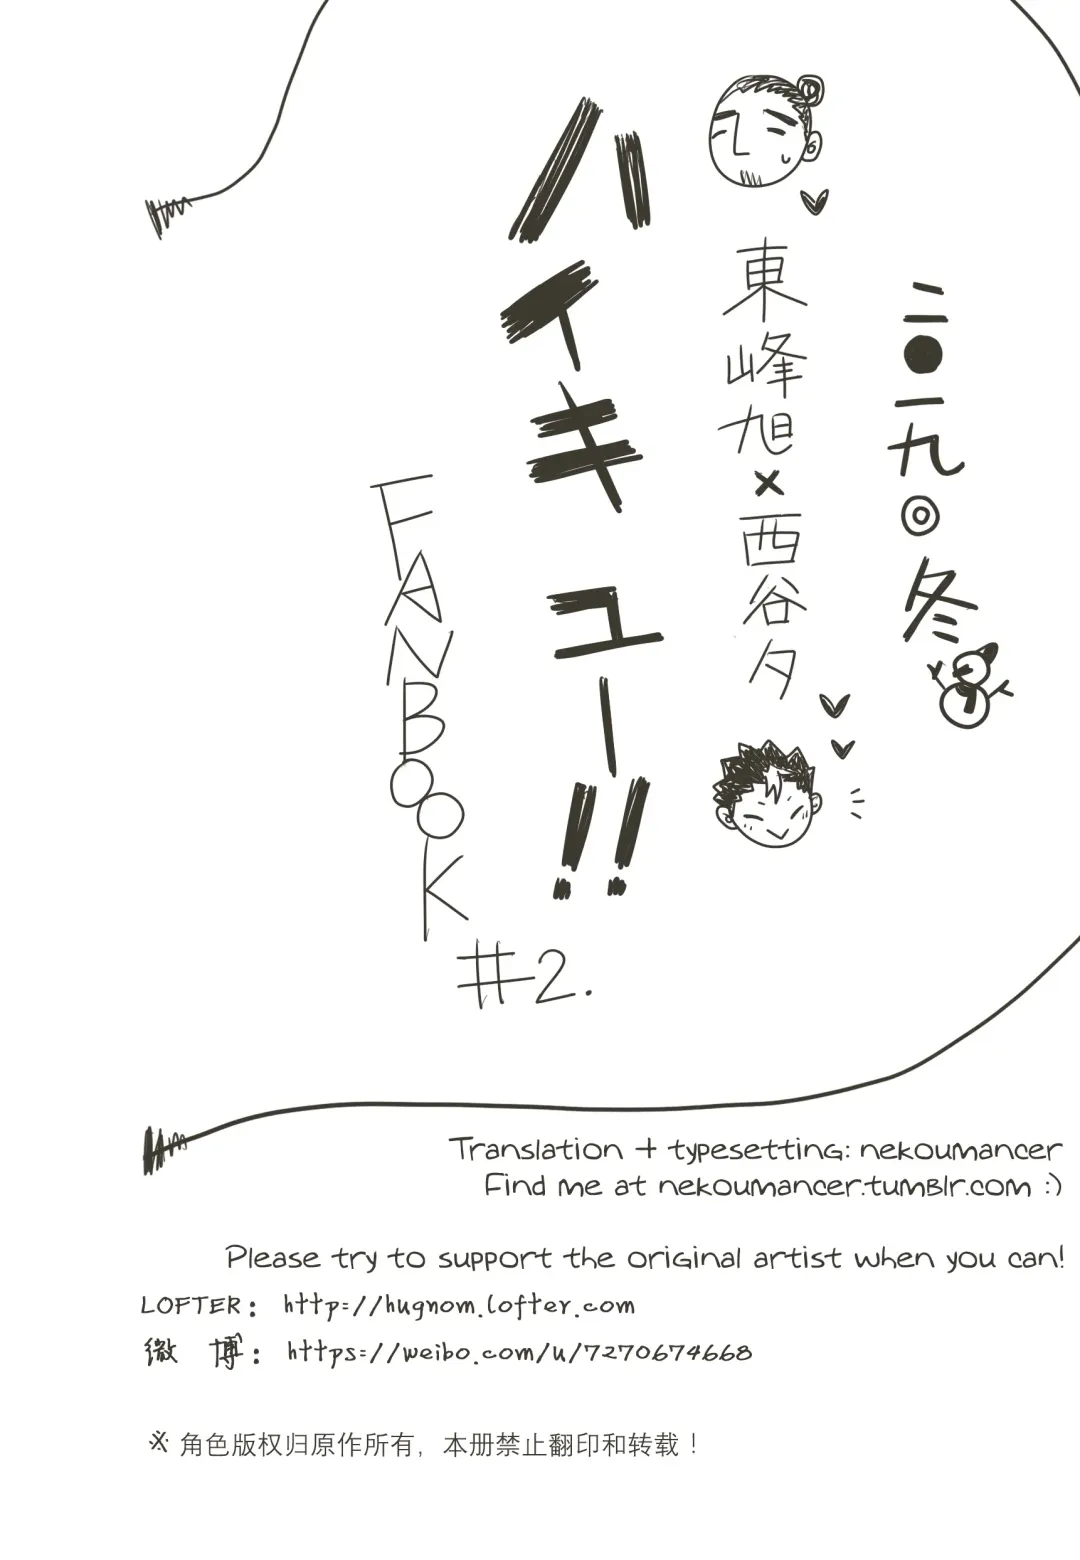 二〇一九◎冬
東峰旭×西谷夕
ハイキュー!!
FANBOOK
#2.
Translation + typesetting: nekoumancer
Find me at nekoumancer.tumblr.com :)
Please try to support the original artist when you can!
LOFTER： http://hugnom.lofter.com
微 博： https://weibo.com/u/7270674668
※ 角色版权归原作所有，本册禁止翻印和转载！